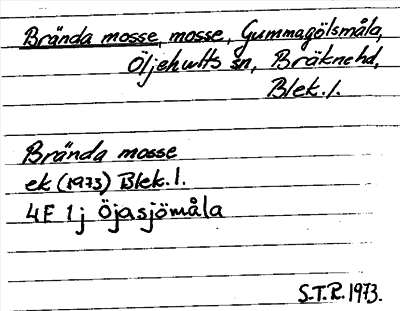 Brända mosse, mosse, Gummagölsmåla,
Öljehults sn, Bräknehd,
Blek. l.
Brända mosse
ek (1973) Blek. l.
4F 1j Öjasjömåla
S.T.R. 1973.